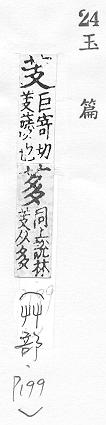 24
玉篇
芰巨寄切芰蔆也茤同上説林芰从多(艸部.P199)